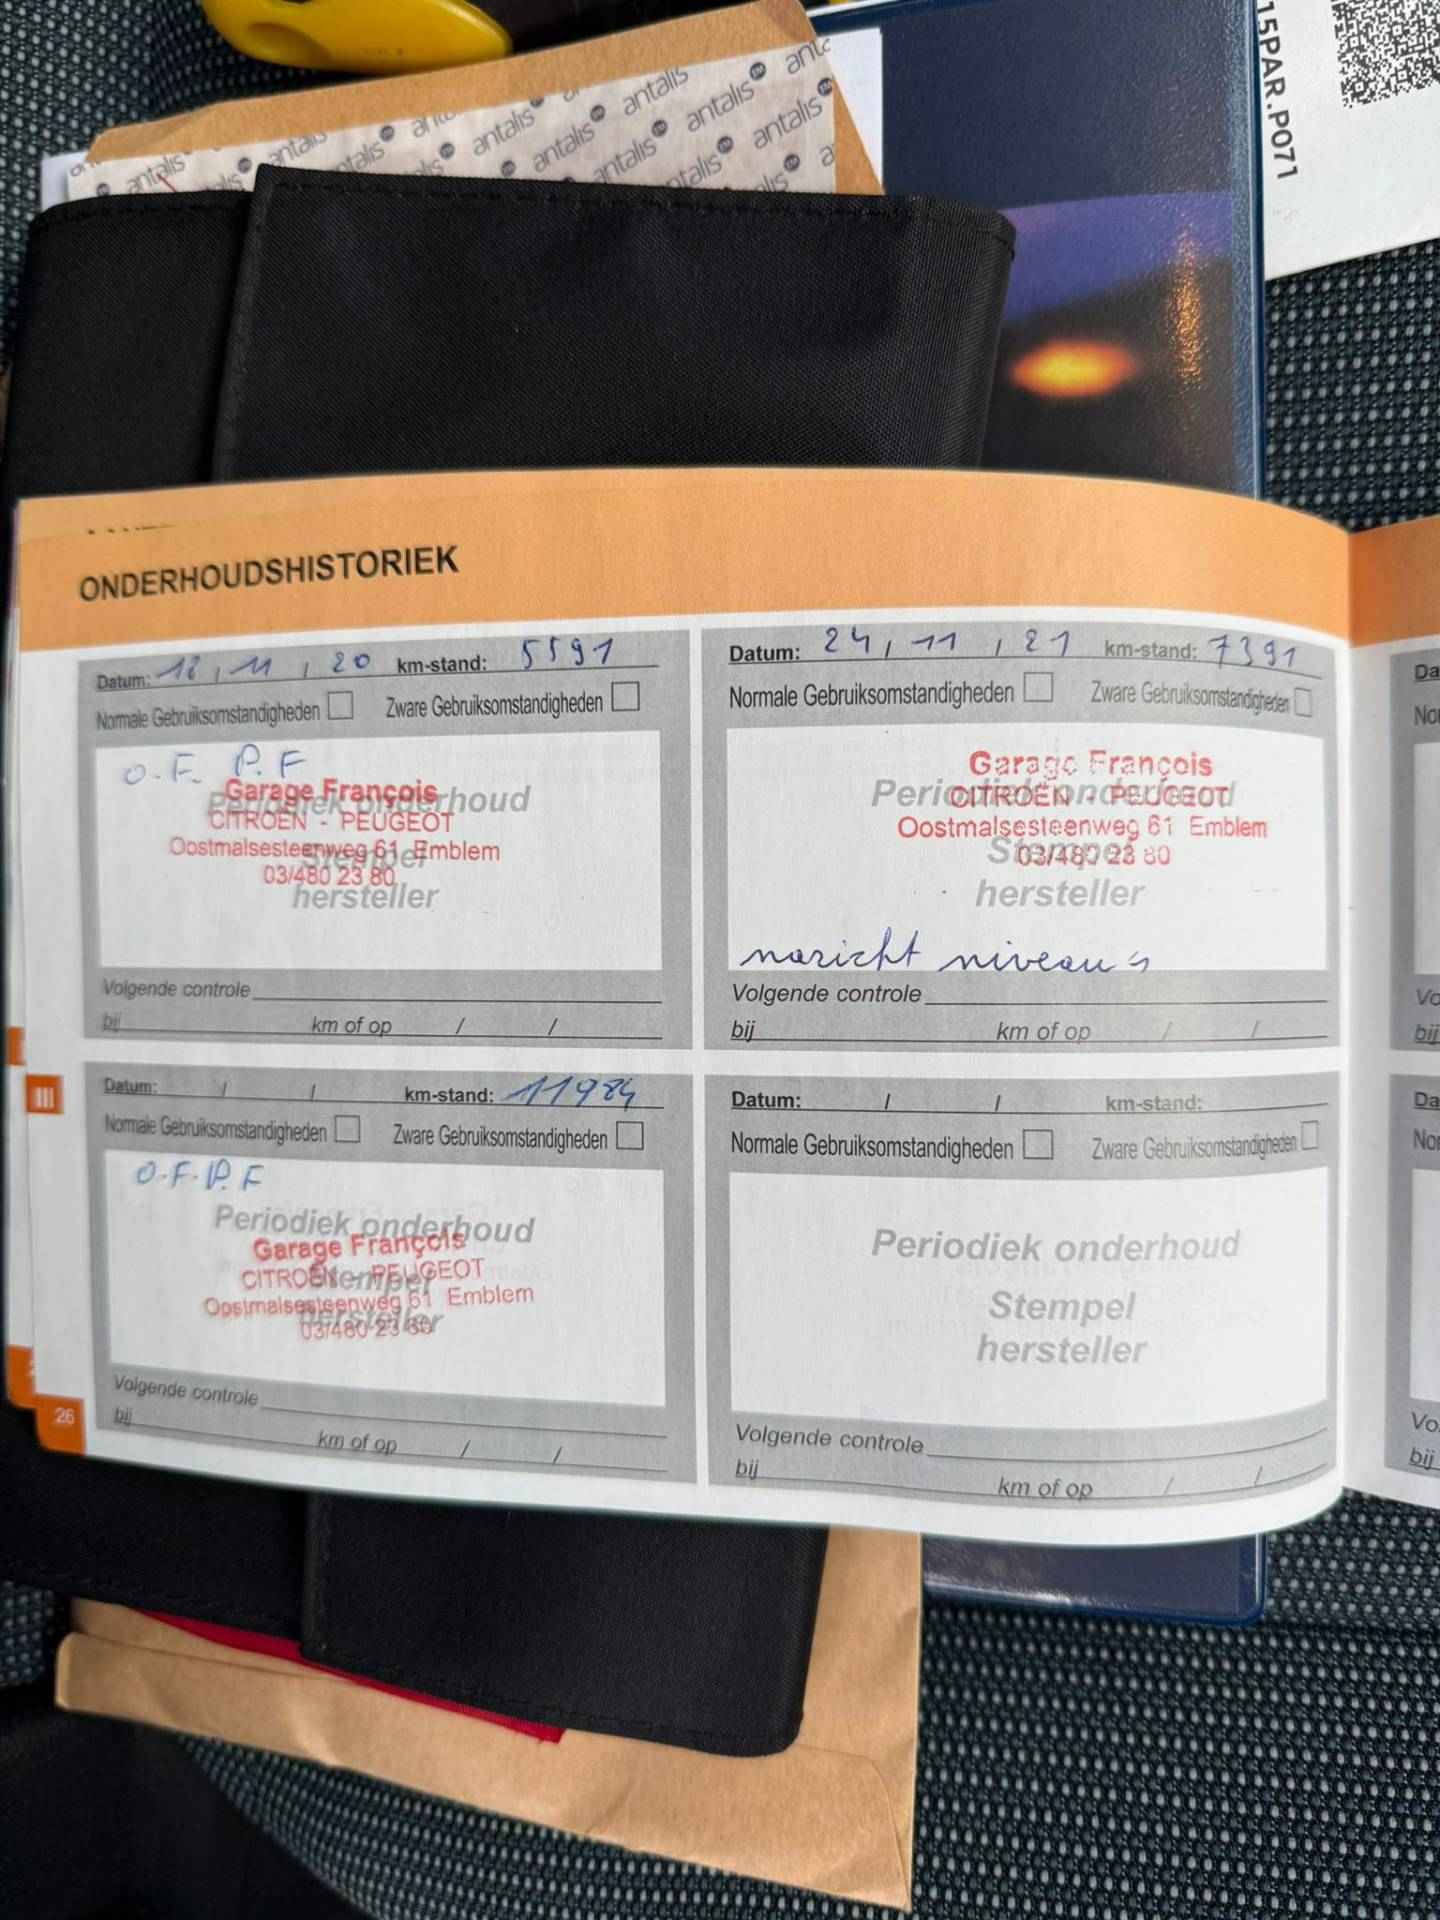 antalis antalis antalis antalis
antalis antalis antalis
15PAR.P071
ONDERHOUDSHISTORIEK
Datum: 18 / 11 / 20 km-stand: 5591
Normale Gebruiksomstandigheden Zware Gebruiksomstandigheden
O.F. P.F
Garage François
Periodiek onderhoud
CITROËN - PEUGEOT
Oostmalsesteenweg 61 Emblem
Stempel
03/480 23 80
hersteller
Volgende controle
bij km of op / /
Datum: 24 / 11 / 21 km-stand: 7391
Normale Gebruiksomstandigheden Zware Gebruiksomstandigheden
Garage François
Periodiek onderhoud
CITROËN - PEUGEOT
Oostmalsesteenweg 61 Emblem
Stempel
03/480 23 80
hersteller
nazicht niveau's
Volgende controle
bij km of op / /
III
Datum: / / km-stand: 11984
Normale Gebruiksomstandigheden Zware Gebruiksomstandigheden
O.F.P.F
Periodiek onderhoud
Garage François
CITROËN - PEUGEOT
Stempel
Oostmalsesteenweg 61 Emblem
hersteller
03/480 23 80
Volgende controle
bij km of op / /
Datum: / / km-stand:
Normale Gebruiksomstandigheden Zware Gebruiksomstandigheden
Periodiek onderhoud
Stempel
hersteller
Volgende controle
bij km of op / /
26